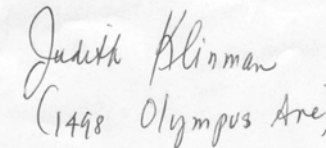 Judith Klinman
(1498 Olympus Ave)